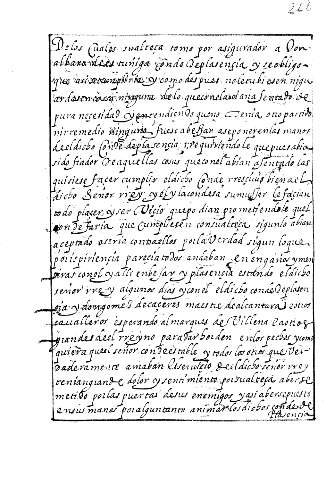 De los cuales su alteza tomo por asegurador a Don
albaro de estuñiga conde de plasençia y se obligo
que asi se cunpliria y como despues no le tubiesen ni gu
ardasen cosa ninguna de lo que con el abian asentado de
pura neçesidad y entendiendo que no tenia otro partido
ni rremedio ninguno fuese a Bejar a se poner en las manos
de el dicho Conde de plasençia rrequiriendole que pues abia
sido fiador de aquellas cosas que con el abian asentado las
quisiese façer cumplir el dicho Conde rresçiuio bien a el
dicho Señor rrey y el y la condesa su muger le façian
todo plaçer y serViçio que podian prometiendole que el
con de faria que cumpliesen con su alteza sigun lo abian
aceptado o seria contra ellos po la Verdad sigun lo que
por ispiriençia pareçia todos andaban en engaños y men
tiras con el y alli en bejar y plasençia estando el dicho
señor rrey algunos dias y con el el dicho conde de plasen
çia y don gomez de caçeres maestre de alcantara y otros
caualleros esperando al marques de Villena y a otros
grandes de el rreyno para dar horden en los fechos y como
quiera que el señor condestable y todos los otros que Ver
daderamente amaban el serviçio de el dicho señor rrey
tenian grande dolor y sentimiento por su alteza aberse
metido por las puertas de sus enemigos y asi aberse puesto
en sus manos por algun tanto animar los dichos conde de
Plasençia